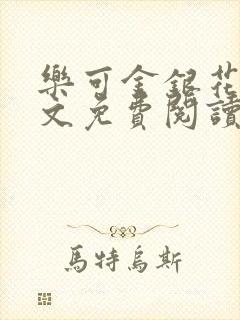 樂可金銀花
文免費閱讀
馬特烏斯